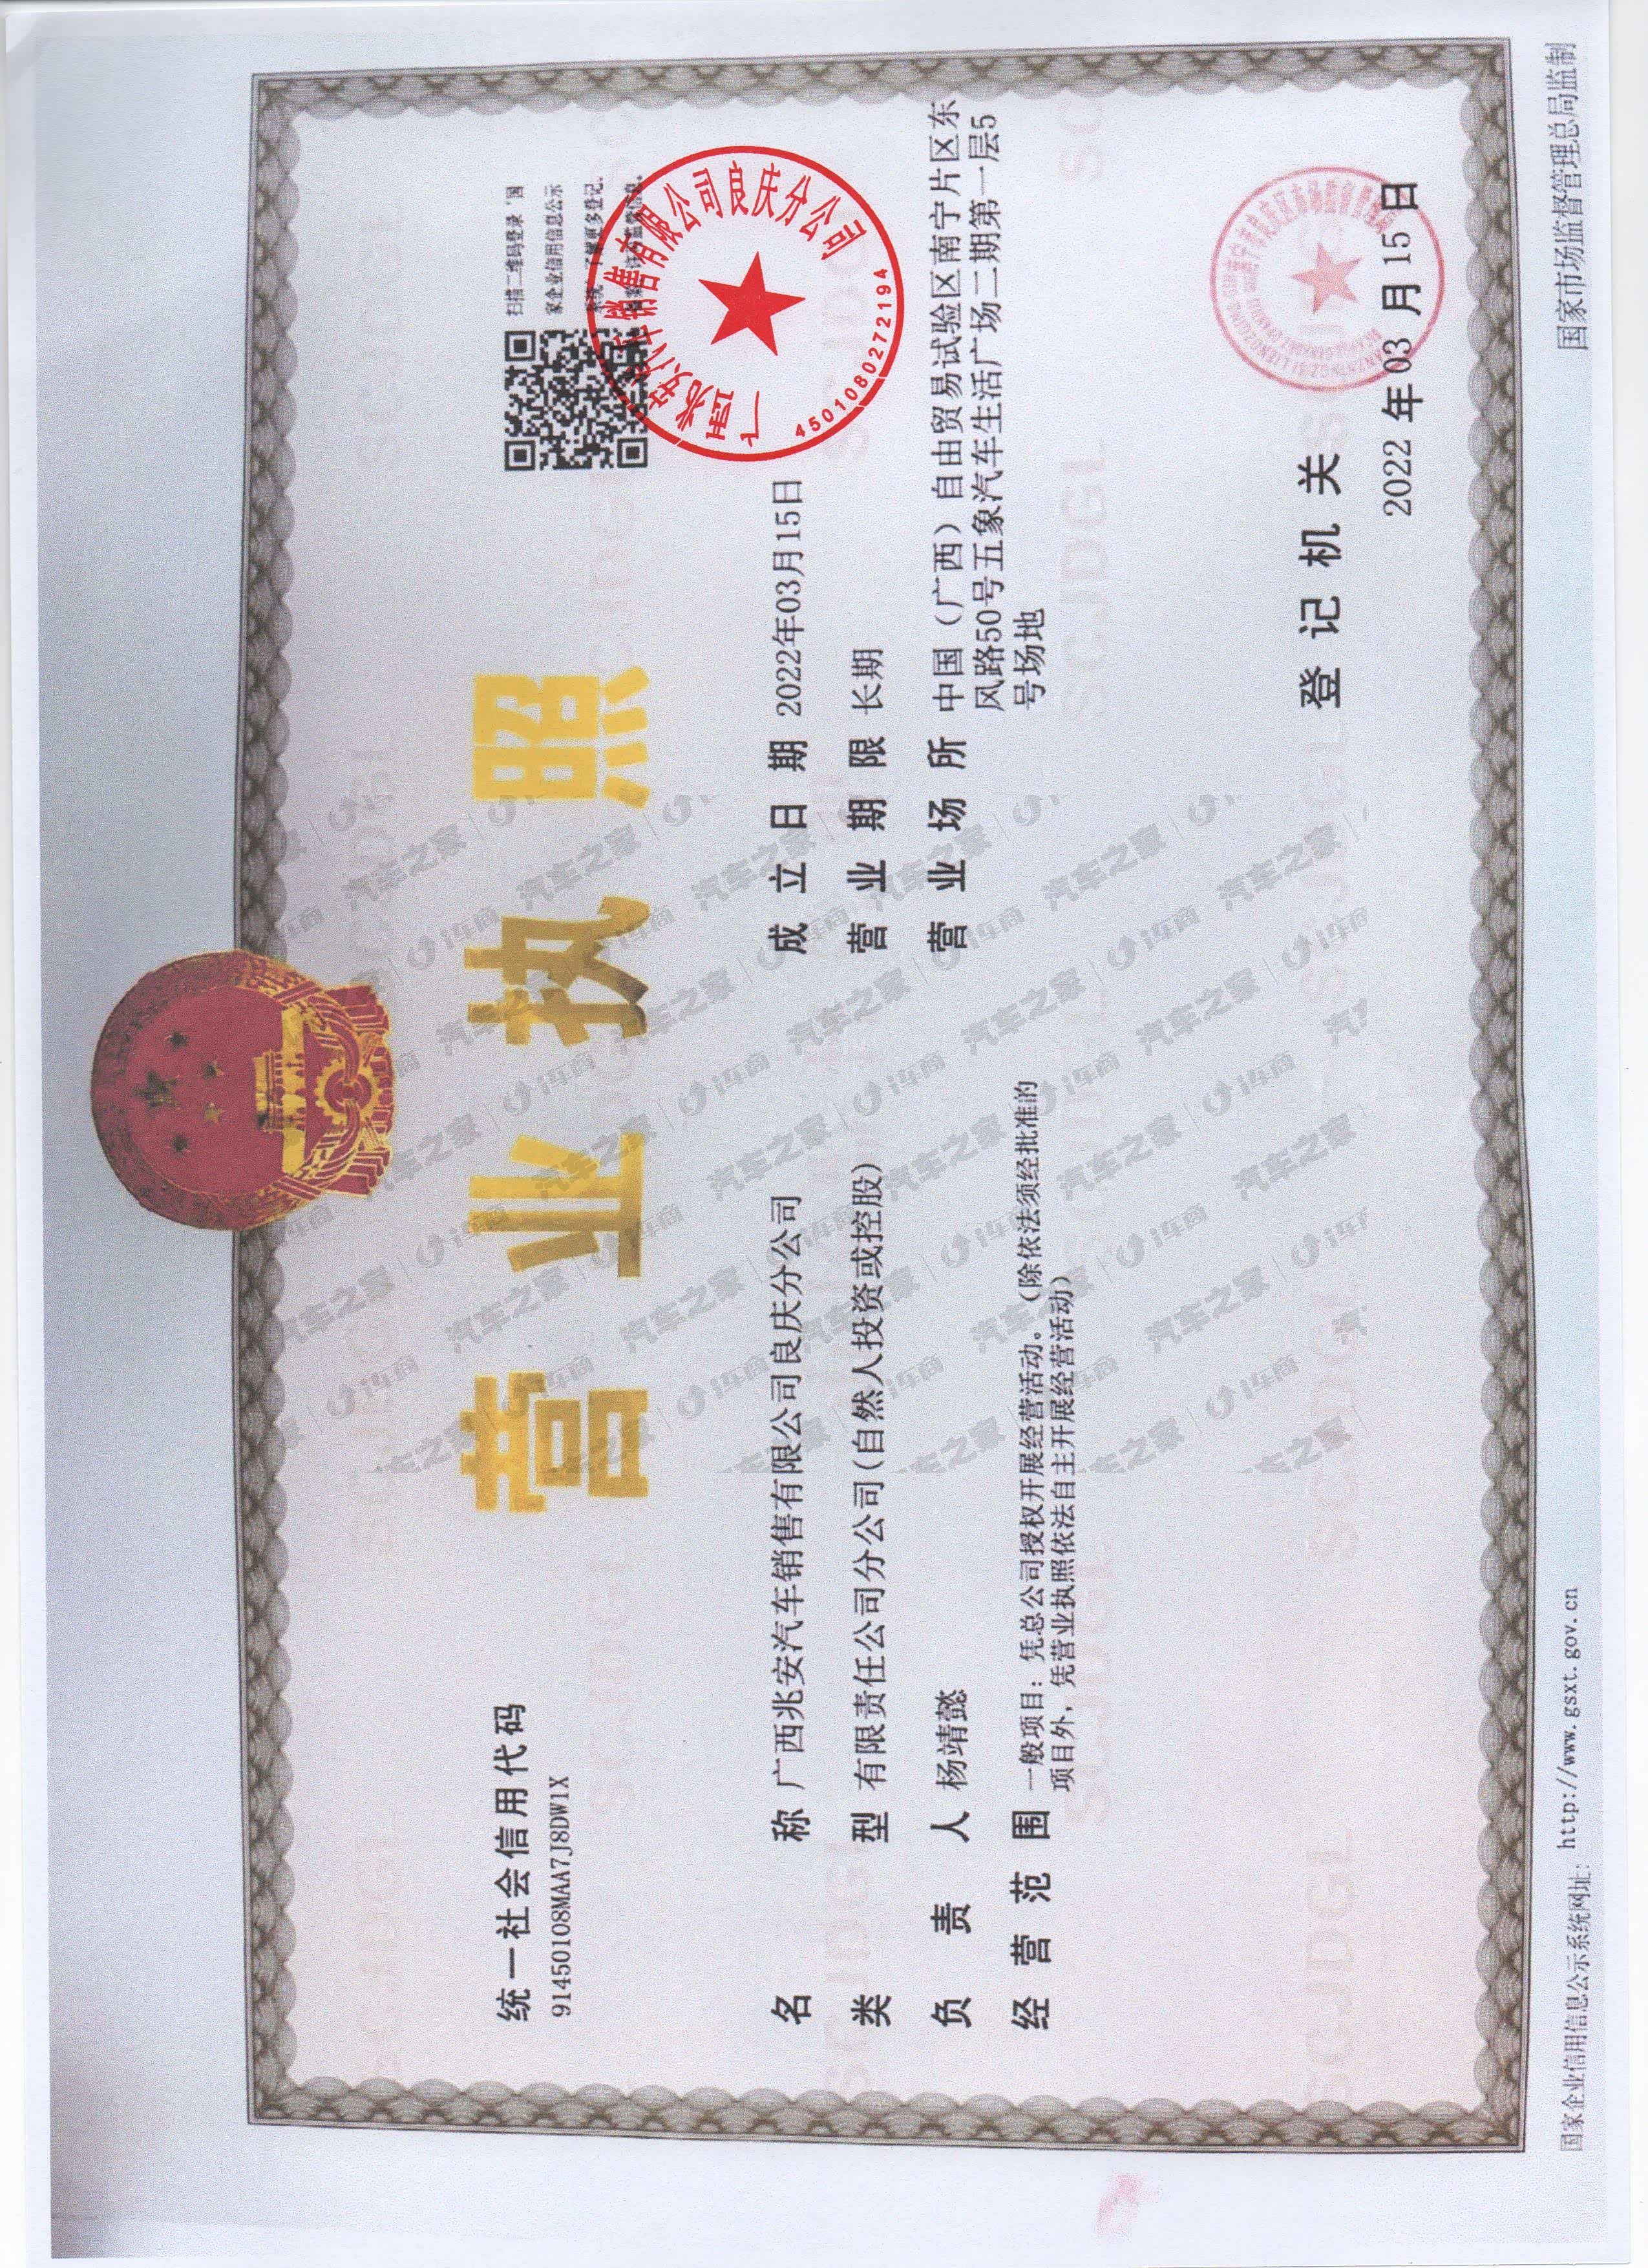 营业执照
统一社会信用代码
91450108MAA7J8DW1X
扫描二维码登录‘国
家企业信用信息公示
名称 广西兆安汽车销售有限公司良庆分公司
类型 有限责任公司分公司(自然人投资或控股)
负责人 杨靖懿
经营范围 一般项目：凭总公司授权开展经营活动。（除依法须经批准的
项目外，凭营业执照依法自主开展经营活动）
成立日期 2022年03月15日
营业期限 长期
营业场所 中国（广西）自由贸易试验区南宁片区东
风路50号五象汽车生活广场二期第一层5
号场地
广西兆安汽车销售有限公司良庆分公司
4501080272194
登记机关
2022 年 03 月 15 日
国家企业信用信息公示系统网址: http://www.gsxt.gov.cn
国家市场监督管理总局监制
汽车之家 | i车商
SCJDGL